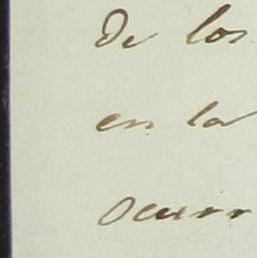 De los
en la
ocurr